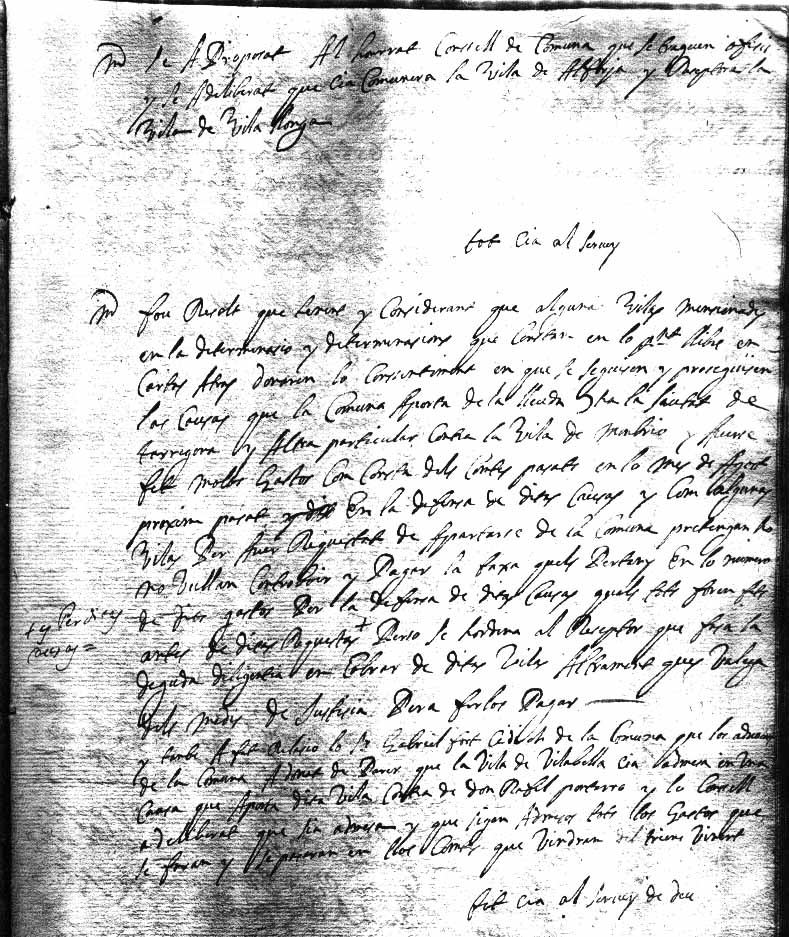 Md se A Proposat Al honrat Consell de Comuna que se traguen ofisis
y se A deliberat que cia Comunera la Vila de Alforja y Receptora la
Vila de Vila llonga
tot cia al servey
Md fou Resolt que tenint y Considerant que alguna Vilas mensionades
en la determinasio y determinasions que Constan en lo pnt llibre en
Cartes Atras donaren lo Consintiment en que se seguisen y proseguisen
las Causas que la Comuna Aporta de la lleuda de
tarragona y Altra particular Contra la Vila de Monbrio y Averse
fet molts Gastos Com Consta dels Contes pasats en lo mes de Agost
proxim pasat En la defensa de dites Causas y Com algunas
Vilas Per Aver Requestat de Apartarse de la Comuna pretengan no
no Vullian Contribuir y Pagar la taxa quels Pertany En lo numero
de dits gastos Per la defensa de dites Causas quels tots foren fets
antes de dites Requestas + Perso se hordena al Receptor que fasa la
+ y Per dites
deguda diligentia en Cobrar de dites Vilas Altrament ques Valega
dels medis de Justisia Pera ferlos Pagar
y tambe A fet Relasio lo Sr Gabriel fort Cindich de la Comuna que los
de la Comuna A donat de Parer que la Vila de Vilabella cia en una
Causa que Aporta dita Vila Contra de don Rafel y lo Consell
a delliberat que sia y que sigan Admesos tots llos Gastos que
se faran y se pasaran en llos Contes que Vindran del trieni Vinent
tot cia al servey de deu